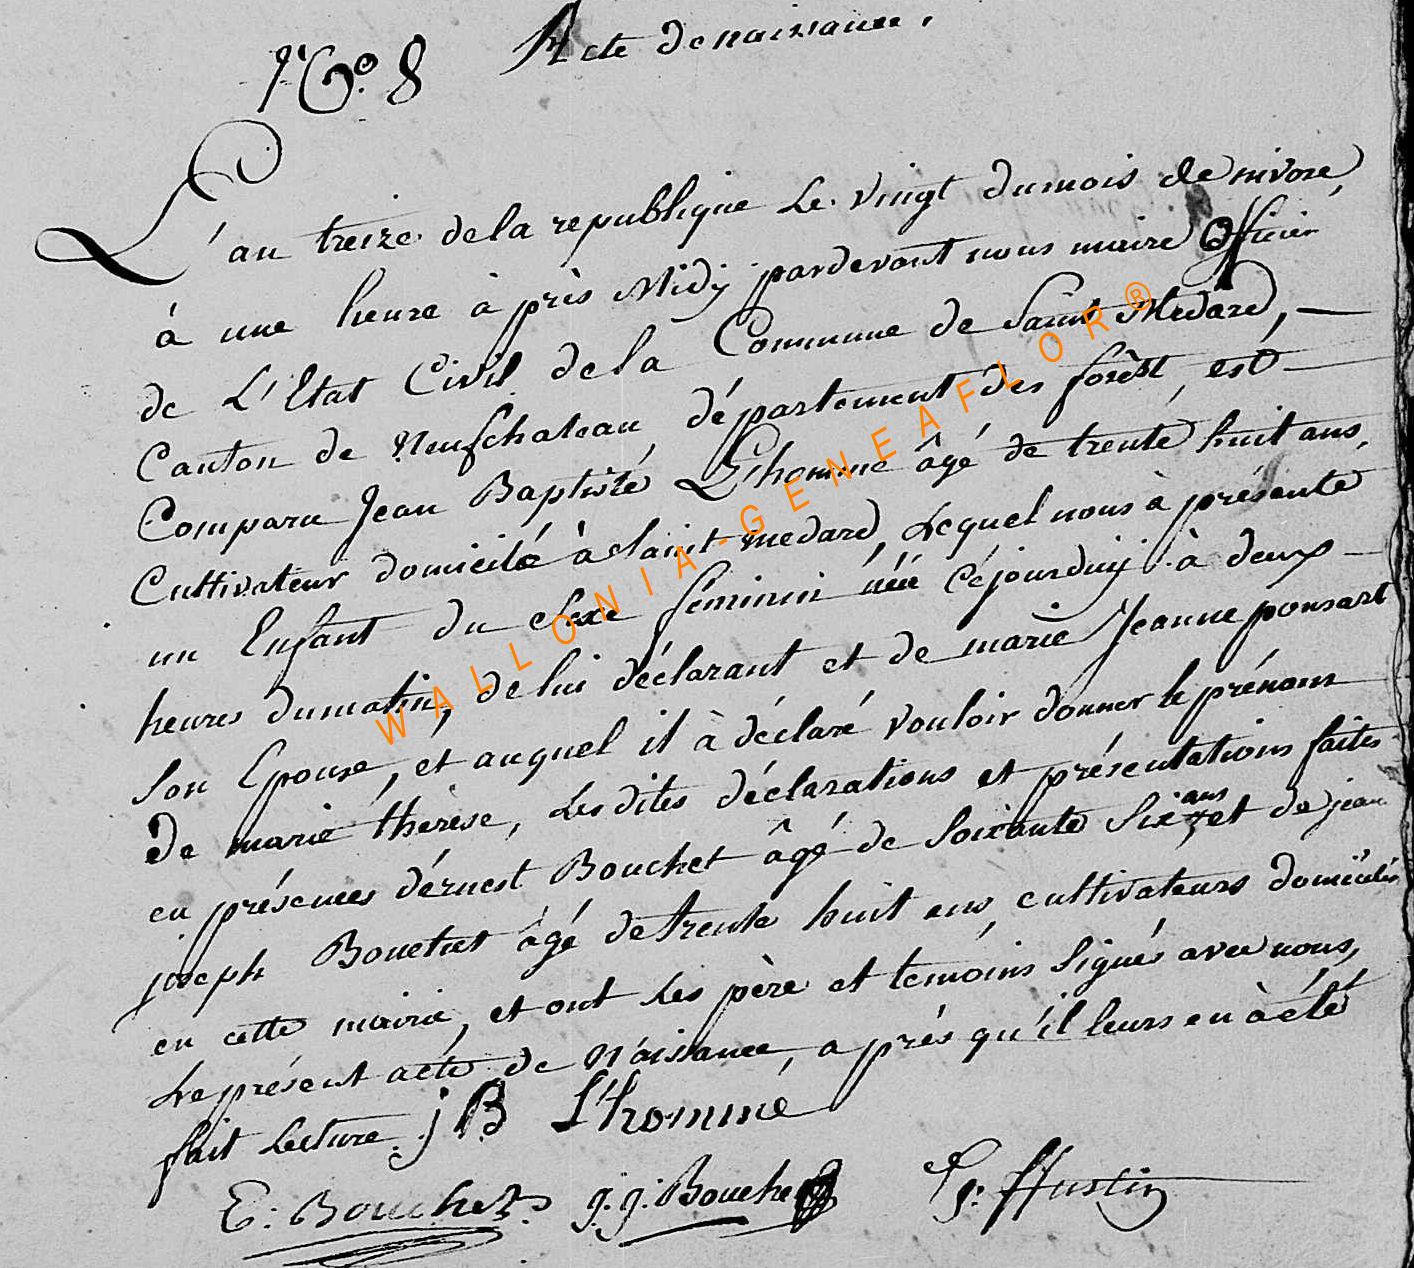 N.º 8 Acte de naissance.
L'an treize de la republique Le vingt du mois de nivose,
à une heure à près Midy pardevant nous maire Officier
de L'Etat Civil de la Commune de Saint Medard,
Canton de Neufchateau, département des forêst, est
Comparu Jean Baptiste Lhomme âgé de trente huit ans,
Cultivateur domicilé à Saint medard, Lequel nous à présente
un Enfant du Sexe feminin née Céjourdhuy à deux
heures du matin, de lui déclarant et de marie Jeanne ponsart
Son Epouse, et auquel il à déclaré vouloir donner le prénom
De marie thérèse, Lesdites déclarations et présentations faites
en présences d'érnest Bouchet âgé de Soixante Six ans et de jean
joseph Bouchet âgé de trente huit ans, cultivateurs domiciliés
en cette mairie, et ont Les père et temoins Signés avec nous,
Le présent acte de Naissance, a prés qu'il leurs en à été
fait Lecture. j B L'hommé
E: Bouchet j. j. Bouchet Hustin
WALLONIA-GENEAFLOR®